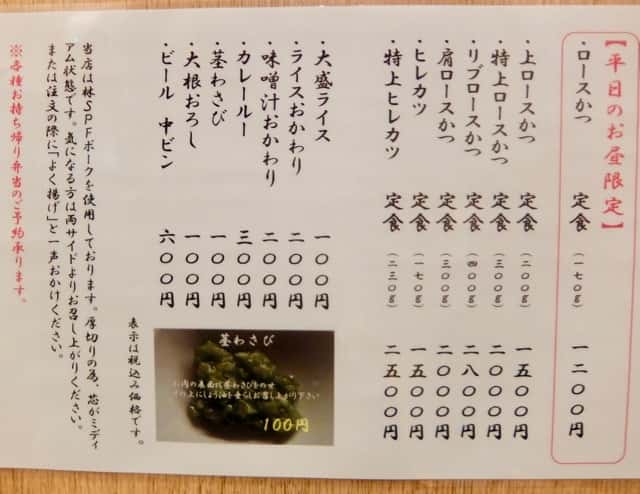 【平日のお昼限定】
・ロースかつ 定食 (一七〇g) 一二〇〇円
・上ロースかつ 定食 (二〇〇g) 一五〇〇円
・特上ロースかつ 定食 (三〇〇g) 二〇〇〇円
・リブロースかつ 定食 (四〇〇g) 二八〇〇円
・肩ロースかつ 定食 (三〇〇g) 二〇〇〇円
・ヒレカツ 定食 (一七〇g) 一五〇〇円
・特上ヒレカツ 定食 (二三〇g) 二五〇〇円
・大盛ライス 一〇〇円
・ライスおかわり 二〇〇円
・味噌汁おかわり 二〇〇円
・カレールー 三〇〇円
・茎わさび 一〇〇円
・大根おろし 一〇〇円
・ビール 中ビン 六〇〇円
表示は税込み価格です。
茎わさび
お肉の表面に茎わさびをのせ
その上にしょうゆを垂らしお召し上がり下さい
100円
当店は林SPFポークを使用しております。厚切りの為、芯がミディ
アム状態です。気になる方は両サイドよりお召し上がりください。
または注文の際に「よく揚げ」と一声おかけください。
※各種お持ち帰り弁当のご予約承ります。